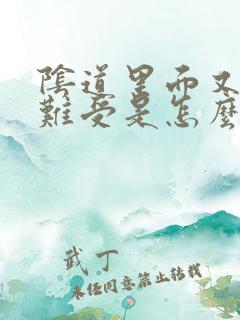 陰道里而又
難受是怎麼
武丁
未经同意禁止转载